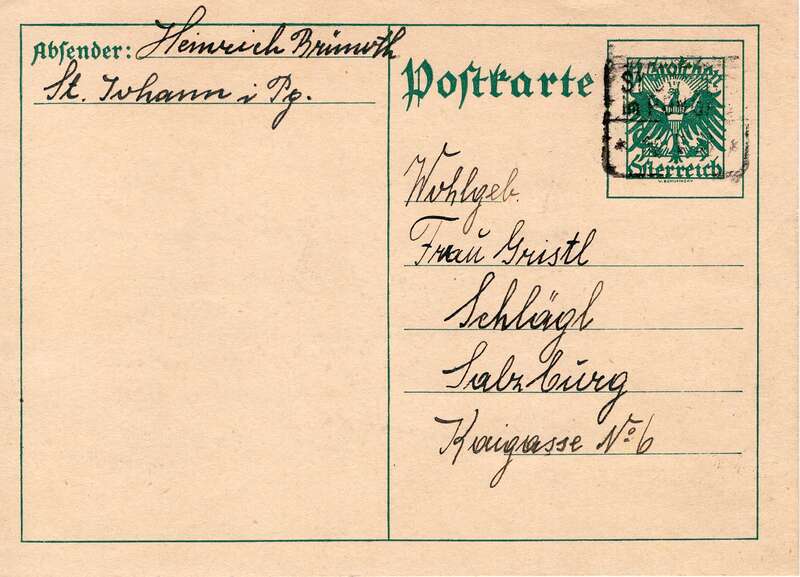 Absender: Heinrich Brümoth
St. Johann i Pg.
Postkarte
Groschen
St
Österreich
Wohlgeb.
Frau Gristl
Schlägl
Salzburg
Kaigasse No. 6